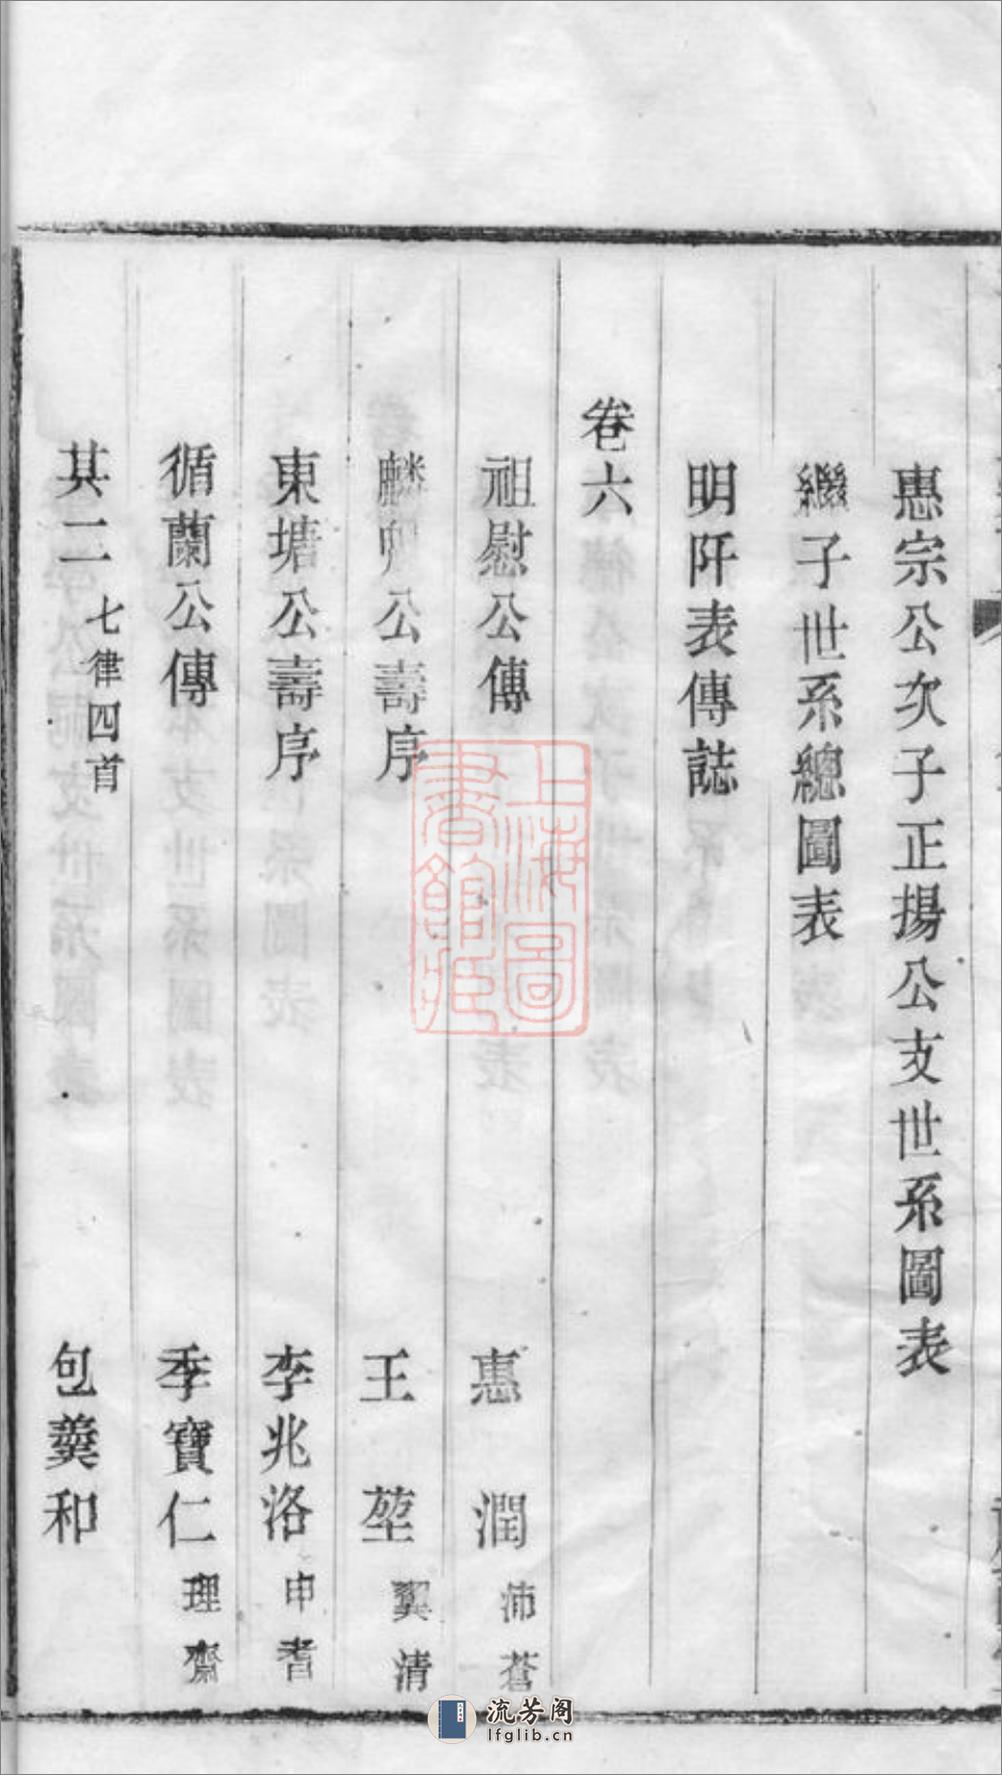 惠宗公次子正揚公支世系圖表
繼子世系總圖表
明阡表傳誌
卷六
祖慰公傳 惠潤 沛蒼
麟 公壽序 王堃 翼清
東塘公壽序 李兆洛 申耆
循蘭公傳 季寶仁 理齋
其二 七律四首 包羹和
上海圖書館藏
流芳阁
lfglib.cn